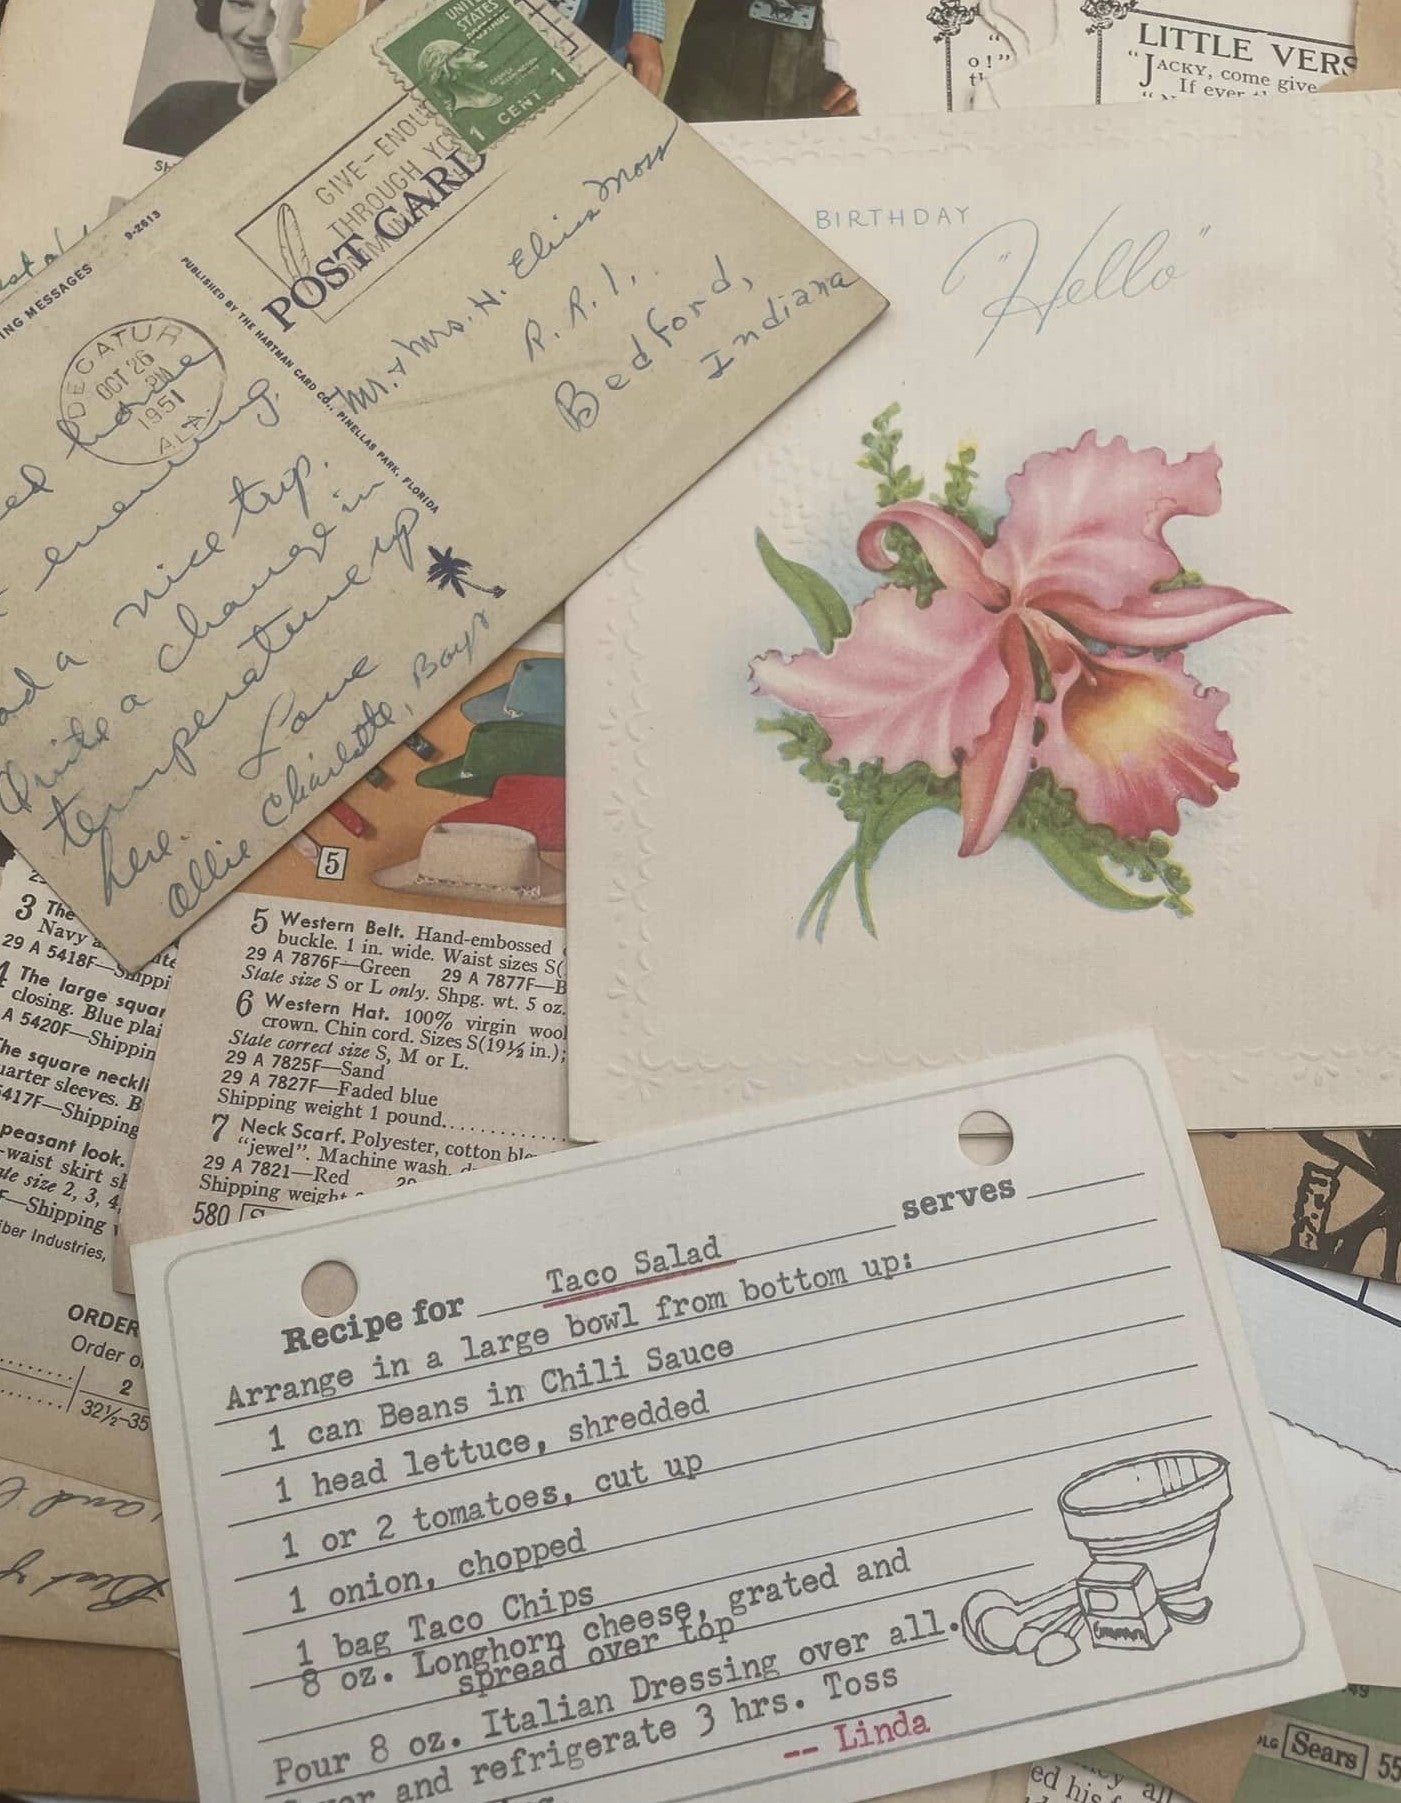 o!"
LITTLE VERS
"JACKY, come give
If ever
UNITED
STATES
1 CENT 1
GIVE-ENOU
THROUGH YO
POST CARD
9-2613
ING MESSAGES
PUBLISHED BY THE HARTMAN CARD CO., PINELLAS PARK, FLORIDA
DECATUR
OCT 26
PM
1951
ALA.
Mr. & Mrs. H. Elvis Moss
R. R. 1,
Bedford,
Indiana
home
evening.
a nice trip.
Quite a change in
temperature up
here.
Love
Ollie Charlotte, Boys
BIRTHDAY
"Hello"
5
3 The
Navy
29 A 5418F—Shippi
4 The large squar
closing. Blue plai
A 5420F—Shippin
The square neckli
uarter sleeves. B
5417F—Shipping
peasant look.
-waist skirt sl
ate size 2, 3, 4
F—Shipping
iber Industries,
ORDER
Order o
2
32½-35
5 Western Belt. Hand-embossed
buckle. 1 in. wide. Waist sizes S(
29 A 7876F—Green 29 A 7877F—B
State size S or L only. Shpg. wt. 5 oz.
6 Western Hat. 100% virgin wool
crown. Chin cord. Sizes S(19½ in.);
State correct size S, M or L.
29 A 7825F—Sand
29 A 7827F—Faded blue
Shipping weight 1 pound
7 Neck Scarf. Polyester, cotton ble
"jewel". Machine wash,
29 A 7821—Red 29
Shipping weight
580
Recipe for Taco Salad serves
Arrange in a large bowl from bottom up:
1 can Beans in Chili Sauce
1 head lettuce, shredded
1 or 2 tomatoes, cut up
1 onion, chopped
1 bag Taco Chips
8 oz. Longhorn cheese, grated and
spread over top
Pour 8 oz. Italian Dressing over all.
and refrigerate 3 hrs. Toss
-- Linda
and
Sears 55
ed his